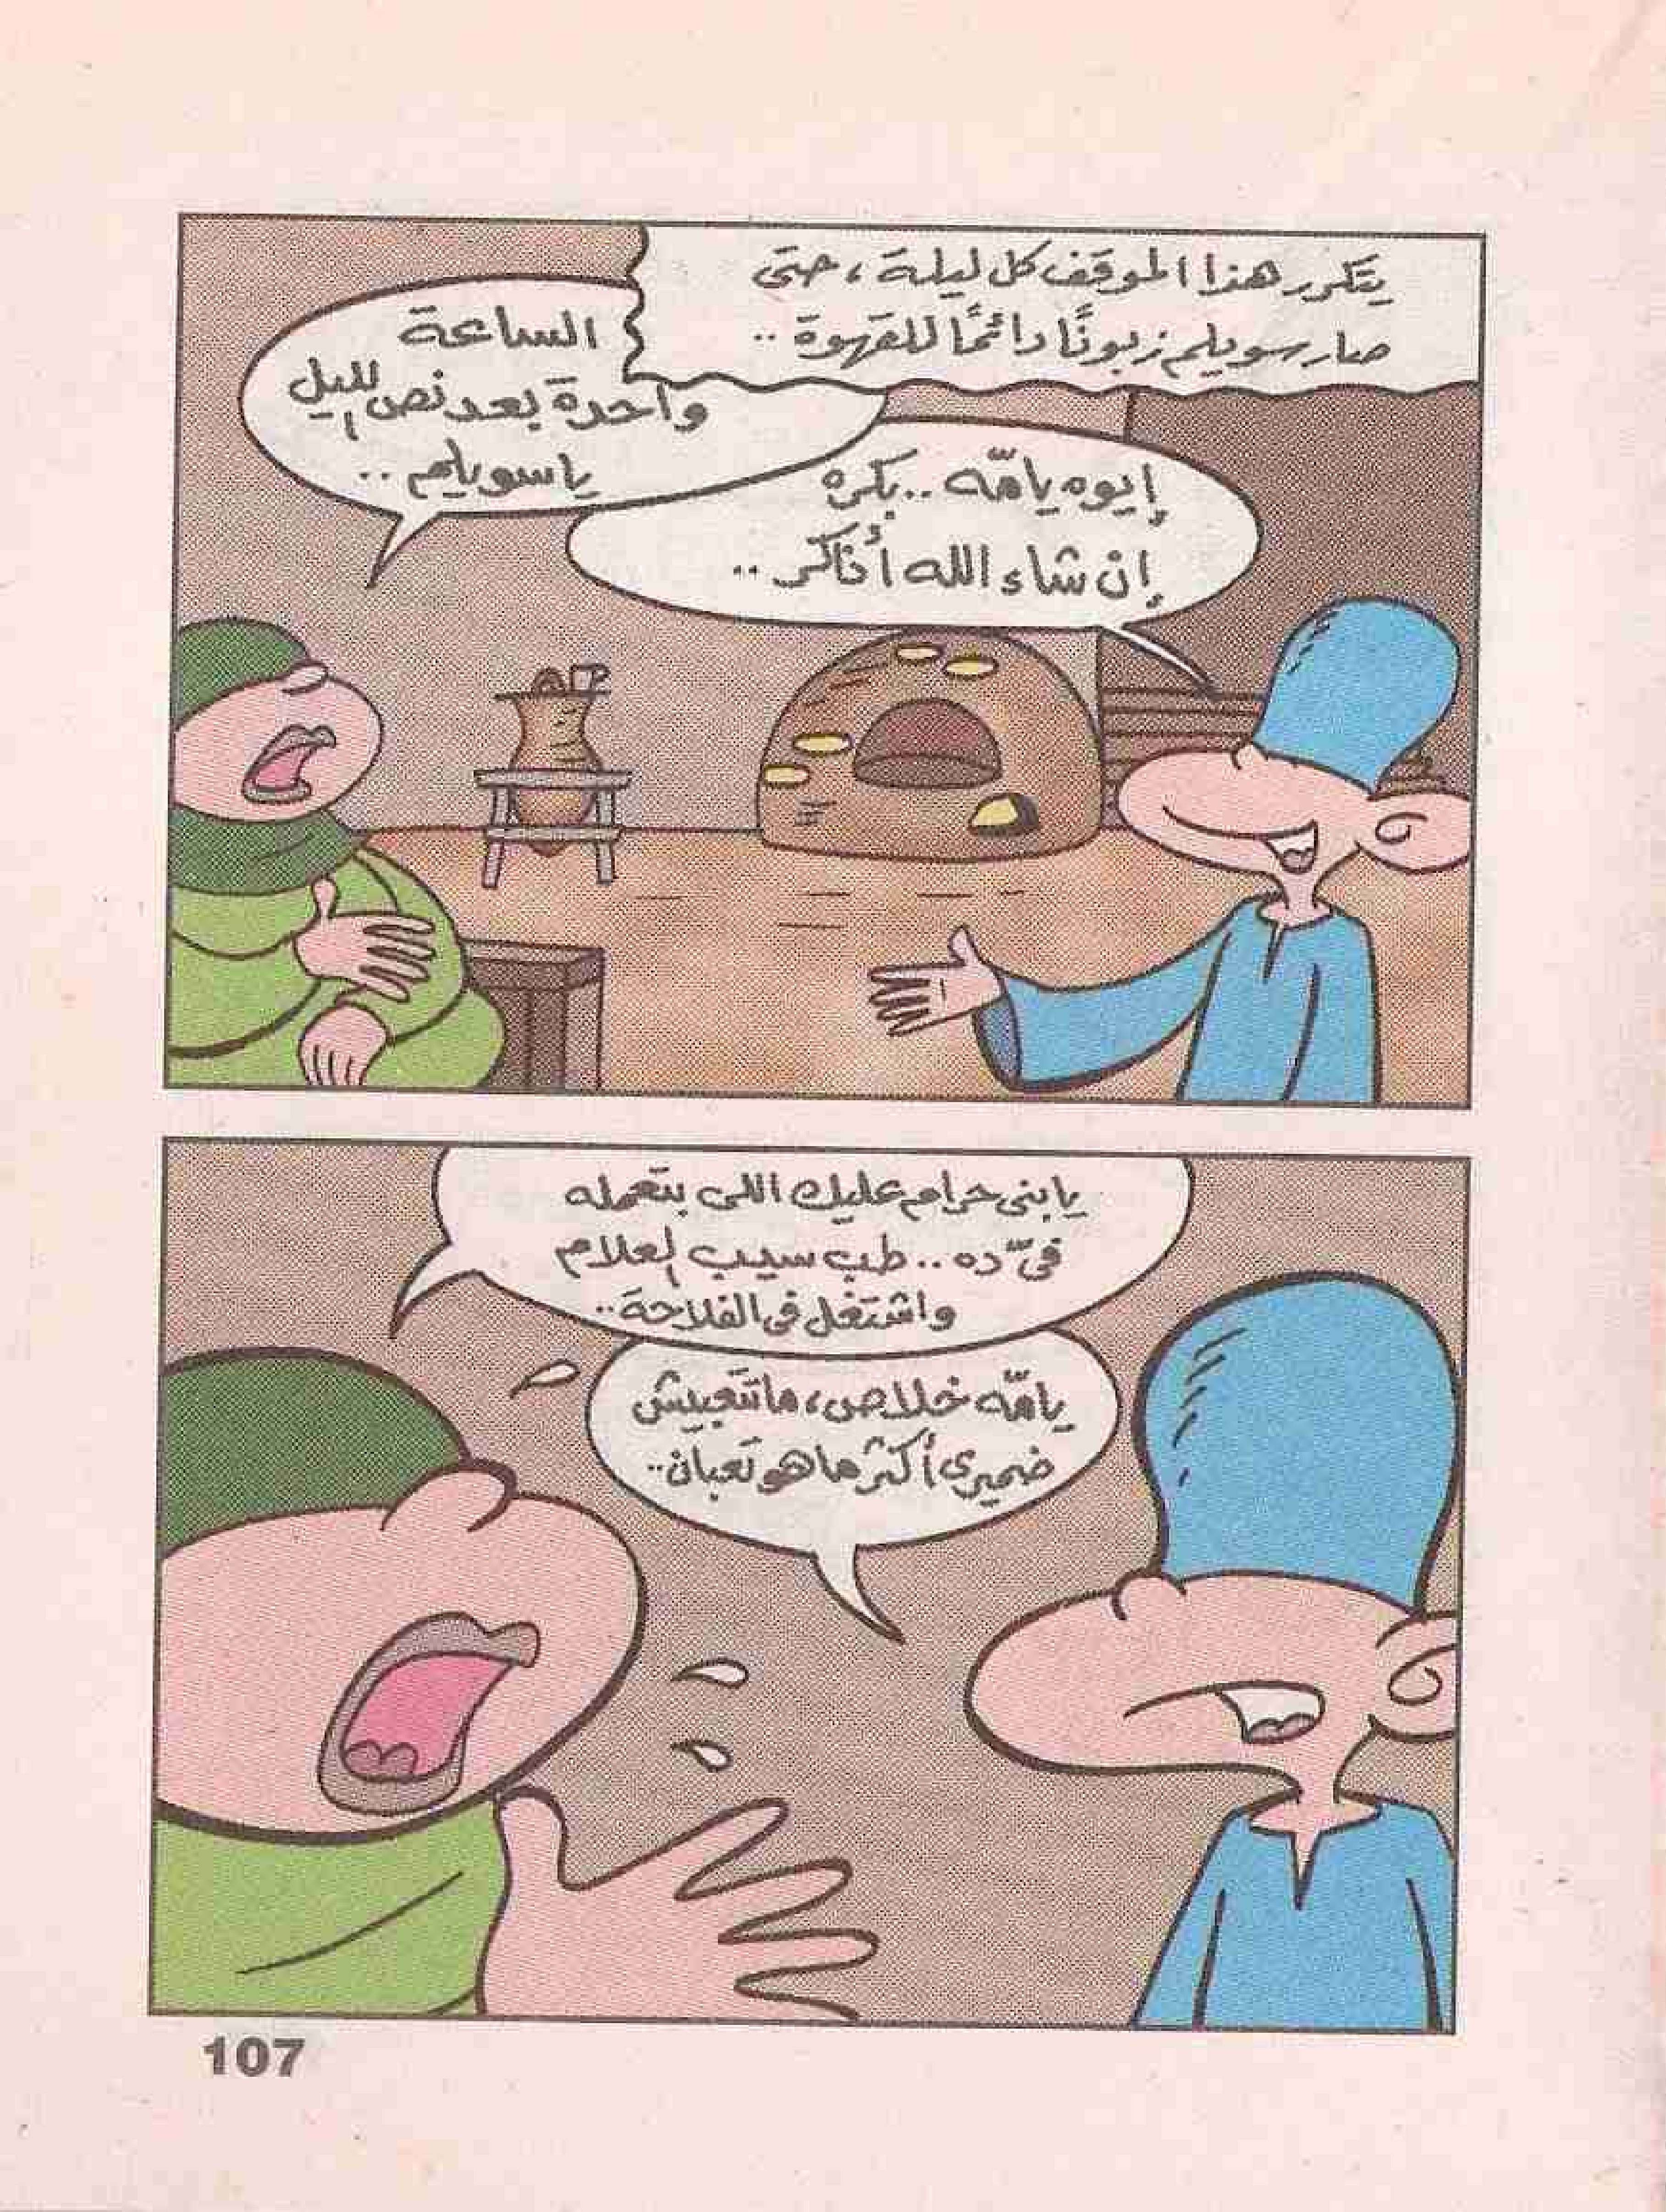 يتكرر هذا الموقف كل ليلة، حتى
صار سويلم زبونًا دائمًا للقهوة..
الساعة
واحدة بعد نص الليل
يا سويلم..
إيوه يامّه.. بكره
إن شاء الله أذاكر..
يا بنى حرام عليك اللى بتعمله
فىّ ده.. طب سيب العلام
واشتغل فى الفلاحة..
يامّه خلاص، ماتتعبيش
ضميرى أكتر ما هو تعبان..
107